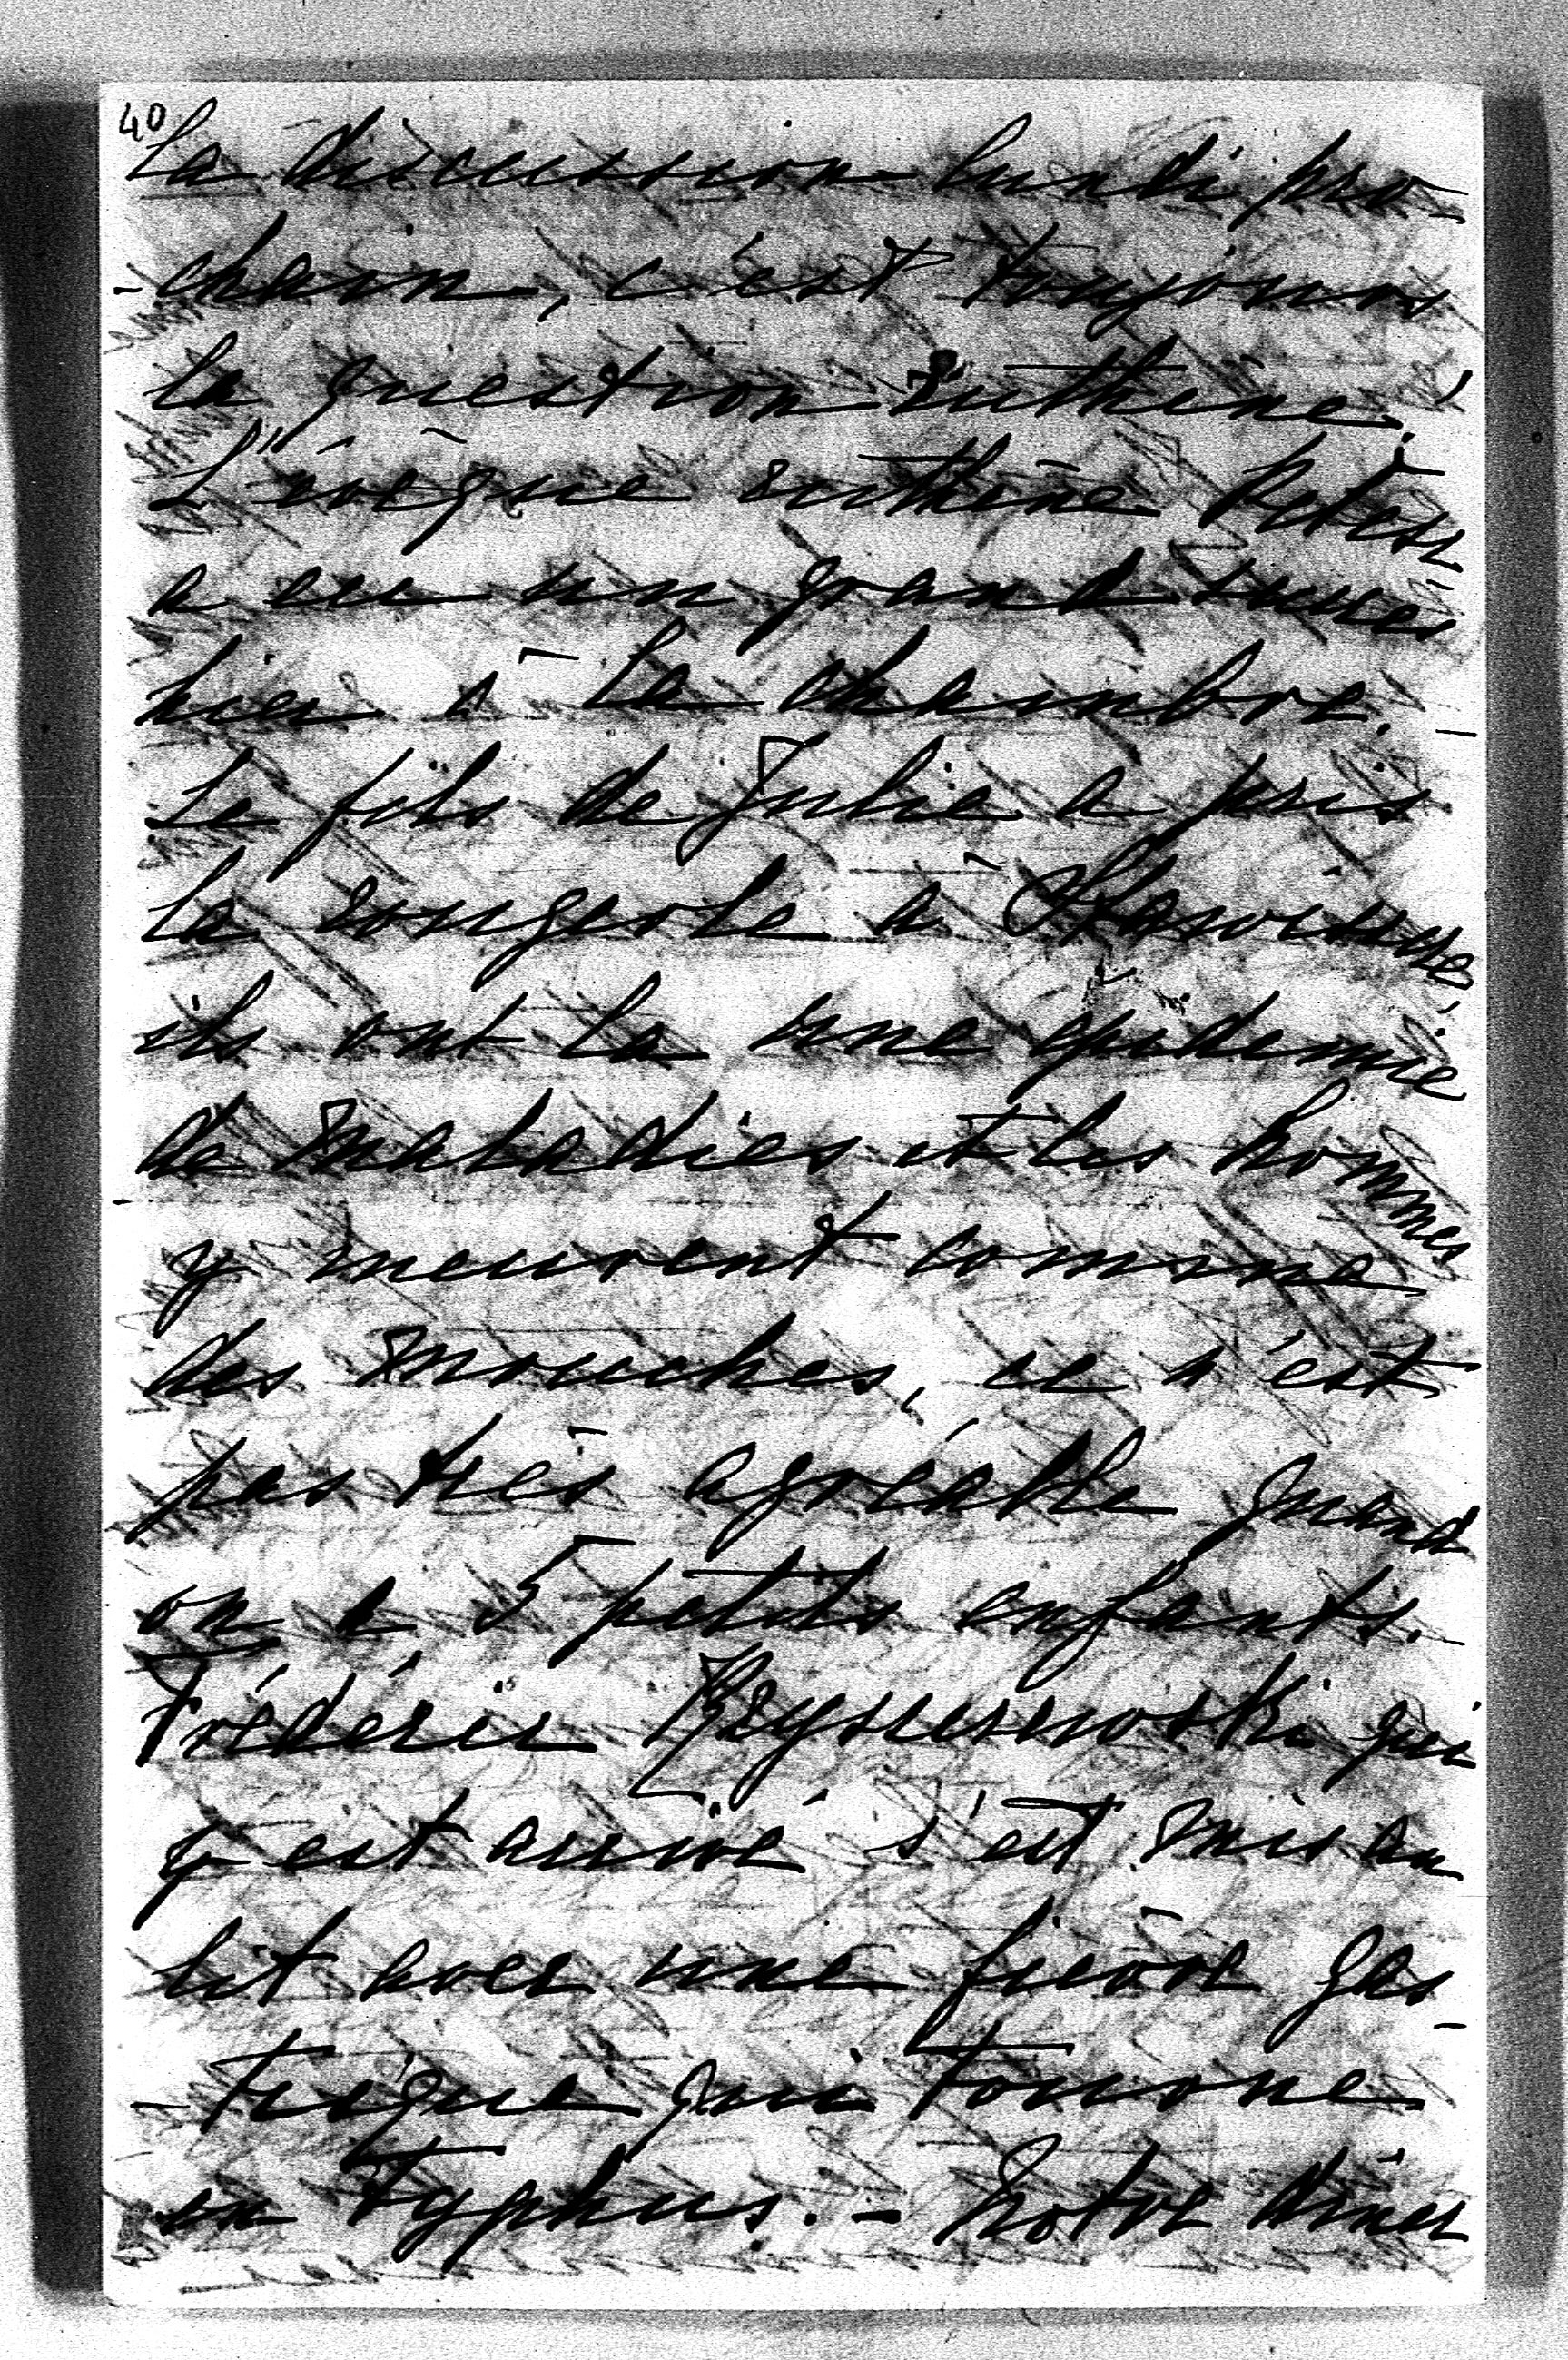 40
la discussion lundi pro-
-chain, c'est toujours
la question ruthène.
L'évêque ruthène
a eu un grand succès
hier à la chambre. -
Le fils de Julie a pris
la rougeole à
ils ont là une épidémie
de maladies et les hommes
y meurent comme
des mouches, ce n'est
pas très agréable quand
on a 5 petits enfants.
Fréderic qui
y est arrivé s'est mis au
lit avec une fièvre gas-
-trique qui tourne
en typhus. - Notre dîner